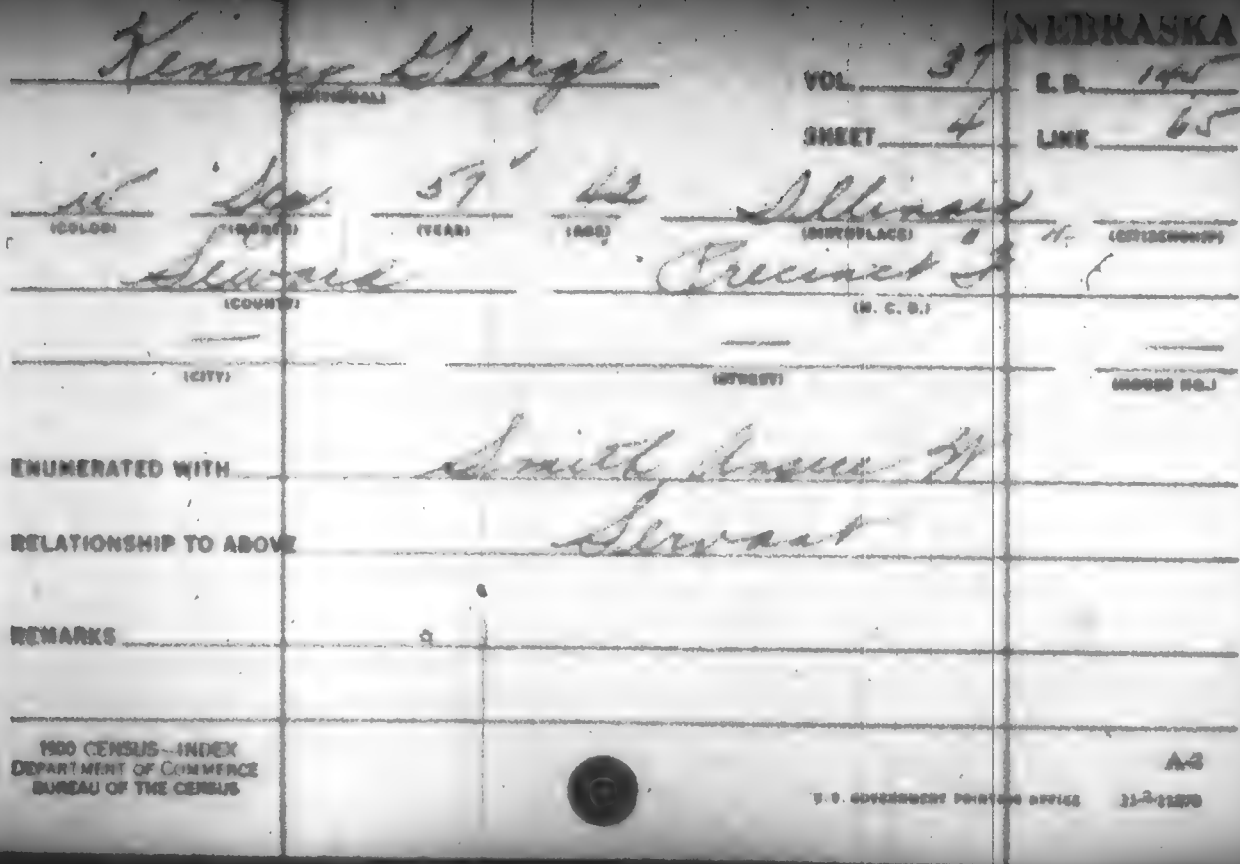 NEBRASKA
George VOL. 37 E. D. 145
(INDIVIDUAL)
SHEET 4 LINE 65
W Dec 57 42 Illinois
(COLOR) (MONTH) (YEAR) (AGE) (BIRTHPLACE) (CITIZENSHIP)
Seward Precinct
(COUNTY) (M. C. D.)
— — —
(CITY) (STREET) (HOUSE NO.)
ENUMERATED WITH Smith
RELATIONSHIP TO ABOVE Servant
REMARKS
1900 CENSUS—INDEX
DEPARTMENT OF COMMERCE
BUREAU OF THE CENSUS
A-3
U. S. GOVERNMENT PRINTING OFFICE